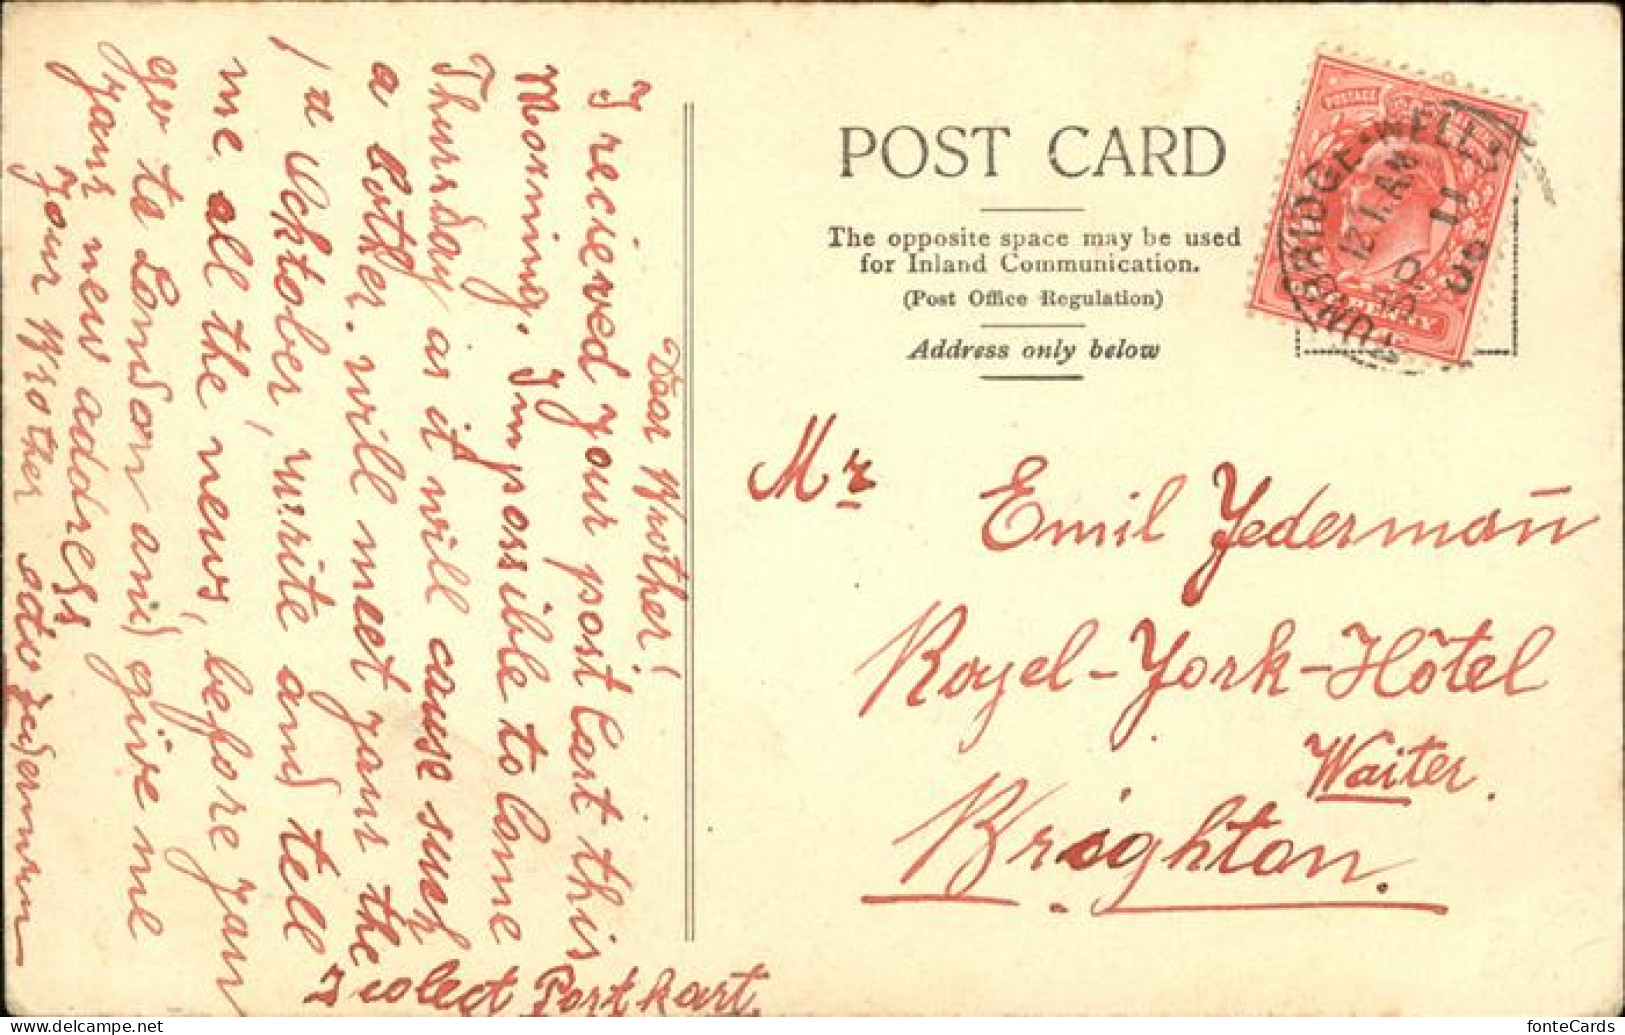 POST CARD
The opposite space may be used
for Inland Communication.
(Post Office Regulation)
Address only below
POSTAGE
TUNBRIDGE-WELLS
12 1. AM
11
Mr Emil Jedermañ
Royel-York-Hôtel
Waiter.
Brighton.
Dear Wrother!
I recieved your post Cart this
Morning. Impossible to Come
Thursday as it will cause such
a bother. will meet your the
ocktober, write and tell
me all the news, before your
go to London and give me
your new address
Your Wrother otto Jederman
I colect Post kart.
fonteCards
delcampe.net